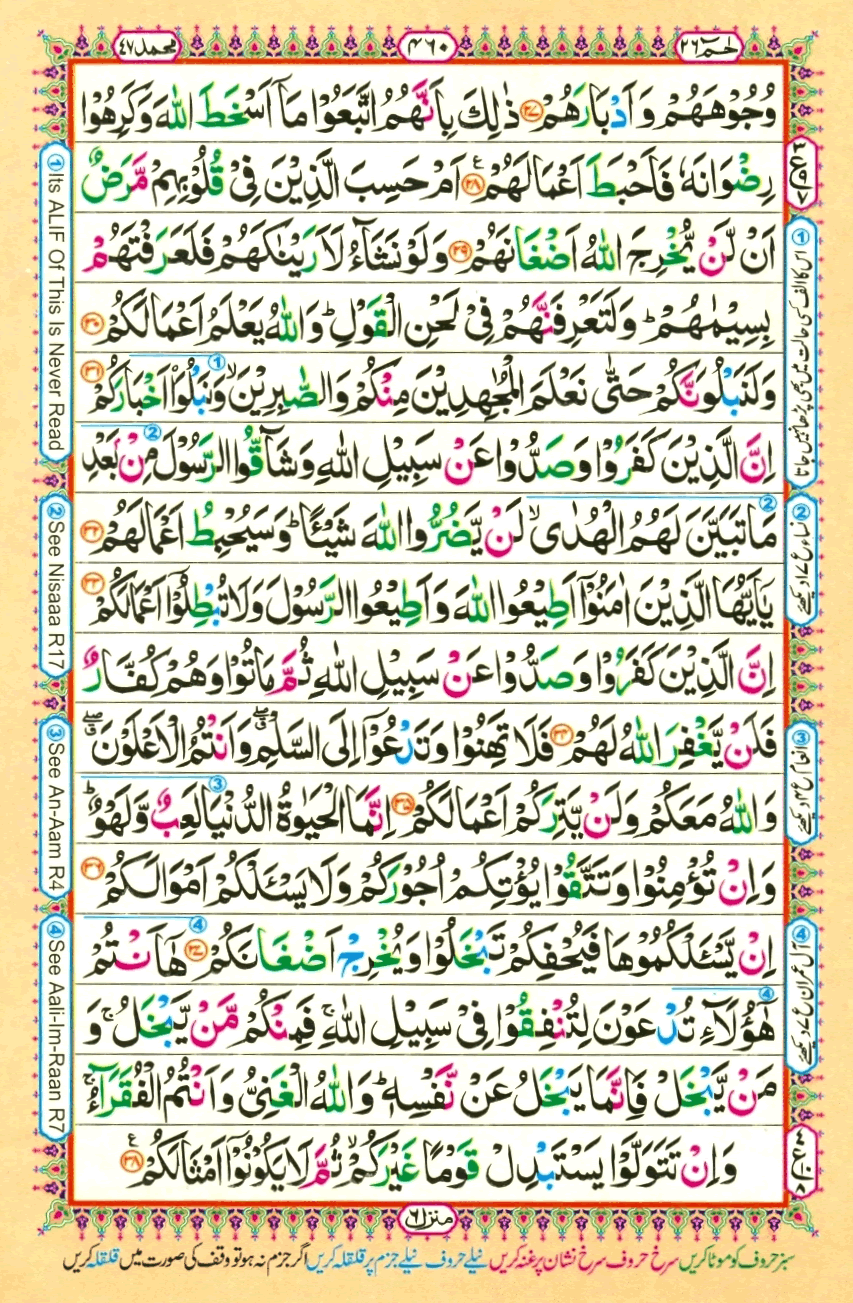 محمد ٤٧
٤٦٠
حٰمٓ ٢٦
وُجُوْهَهُمْ وَاَدْبَارَهُمْ ﴿۲۷﴾ ذٰلِكَ بِاَنَّهُمُ اتَّبَعُوْا مَاۤ اَسْخَطَ اللّٰهَ وَكَرِهُوْا
رِضْوَانَهٗ فَاَحْبَطَ اَعْمَالَهُمْ ﴿۲۸﴾ۧ اَمْ حَسِبَ الَّذِيْنَ فِيْ قُلُوْبِهِمْ مَّرَضٌ
اَنْ لَّنْ يُّخْرِجَ اللّٰهُ اَضْغَانَهُمْ ﴿۲۹﴾ وَلَوْ نَشَآءُ لَاَرَيْنٰكَهُمْ فَلَعَرَفْتَهُمْ
بِسِيْمٰىهُمْ ؕ وَلَتَعْرِفَنَّهُمْ فِيْ لَحْنِ الْقَوْلِ ؕ وَاللّٰهُ يَعْلَمُ اَعْمَالَكُمْ ﴿۳۰﴾
وَلَنَبْلُوَنَّكُمْ حَتّٰى نَعْلَمَ الْمُجٰهِدِيْنَ مِنْكُمْ وَالصّٰبِرِيْنَ ۙ وَنَبْلُوَا۟ اَخْبَارَكُمْ ﴿۳۱﴾
اِنَّ الَّذِيْنَ كَفَرُوْا وَصَدُّوْا عَنْ سَبِيْلِ اللّٰهِ وَشَآقُّوا الرَّسُوْلَ مِنْۢ بَعْدِ
مَا تَبَيَّنَ لَهُمُ الْهُدٰى ۙ لَنْ يَّضُرُّوا اللّٰهَ شَيْـًٔا ؕ وَسَيُحْبِطُ اَعْمَالَهُمْ ﴿۳۲﴾
يٰۤاَيُّهَا الَّذِيْنَ اٰمَنُوْۤا اَطِيْعُوا اللّٰهَ وَاَطِيْعُوا الرَّسُوْلَ وَلَا تُبْطِلُوْۤا اَعْمَالَكُمْ ﴿۳۳﴾
اِنَّ الَّذِيْنَ كَفَرُوْا وَصَدُّوْا عَنْ سَبِيْلِ اللّٰهِ ثُمَّ مَاتُوْا وَهُمْ كُفَّارٌ
فَلَنْ يَّغْفِرَ اللّٰهُ لَهُمْ ﴿۳۴﴾ فَلَا تَهِنُوْا وَتَدْعُوْۤا اِلَى السَّلْمِ ۖۗ وَاَنْتُمُ الْاَعْلَوْنَ ۖۗ
وَاللّٰهُ مَعَكُمْ وَلَنْ يَّتِرَكُمْ اَعْمَالَكُمْ ﴿۳۵﴾ اِنَّمَا الْحَيٰوةُ الدُّنْيَا لَعِبٌ وَّلَهْوٌ ؕ
وَاِنْ تُؤْمِنُوْا وَتَتَّقُوْا يُؤْتِكُمْ اُجُوْرَكُمْ وَلَا يَسْـَٔلْكُمْ اَمْوَالَكُمْ ﴿۳۶﴾
اِنْ يَّسْـَٔلْكُمُوْهَا فَيُحْفِكُمْ تَبْخَلُوْا وَيُخْرِجْ اَضْغَانَكُمْ ﴿۳۷﴾ هٰۤاَنْتُمْ
هٰۤؤُلَآءِ تُدْعَوْنَ لِتُنْفِقُوْا فِيْ سَبِيْلِ اللّٰهِ ۚ فَمِنْكُمْ مَّنْ يَّبْخَلُ ۚ وَ
مَنْ يَّبْخَلْ فَاِنَّمَا يَبْخَلُ عَنْ نَّفْسِهٖ ؕ وَاللّٰهُ الْغَنِيُّ وَاَنْتُمُ الْفُقَرَآءُ ۚ
وَاِنْ تَتَوَلَّوْا يَسْتَبْدِلْ قَوْمًا غَيْرَكُمْ ۙ ثُمَّ لَا يَكُوْنُوْۤا اَمْثَالَكُمْ ﴿۳۸﴾ۧ
① اس کا الف کسی حالت میں بھی پڑھا نہیں جاتا
② نساء ع ۱۷ دیکھئے
③ انعام ع ۴ دیکھئے
④ آل عمران ع ۷ دیکھئے
① Its ALIF Of This Is Never Read
② See Nisaaa R17
③ See An-Aam R4
④ See Aali-Im-Raan R7
منزل ٦
سبز حروف کو موٹا کریں سرخ حروف سرخ نشان پر غنہ کریں نیلے حروف نیلے جزم پر قلقلہ کریں اگر جزم نہ ہو تو وقف کی صورت میں قلقلہ کریں